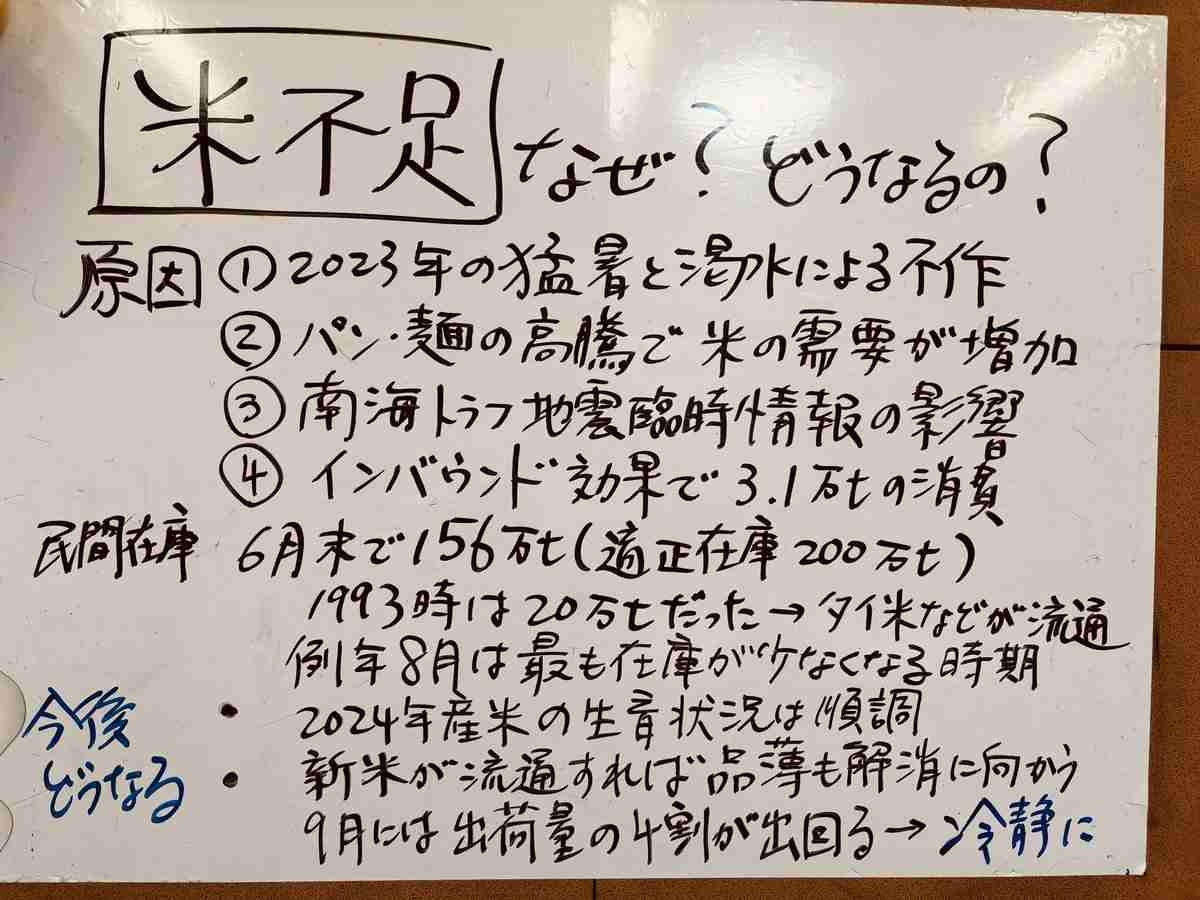 米不足 なぜ? どうなるの?
原因 ① 2023年の猛暑と渇水による不作
② パン・麺の高騰で米の需要が増加
③ 南海トラフ地震臨時情報の影響
④ インバウンド効果で3.1万tの消費
民間在庫 6月末で156万t(適正在庫200万t)
1993時は20万tだった→タイ米などが流通
例年8月は最も在庫が少なくなる時期
今後どうなる
・2024年産米の生育状況は順調
・新米が流通すれば品薄も解消に向かう
9月には出荷量の4割が出回る→冷静に